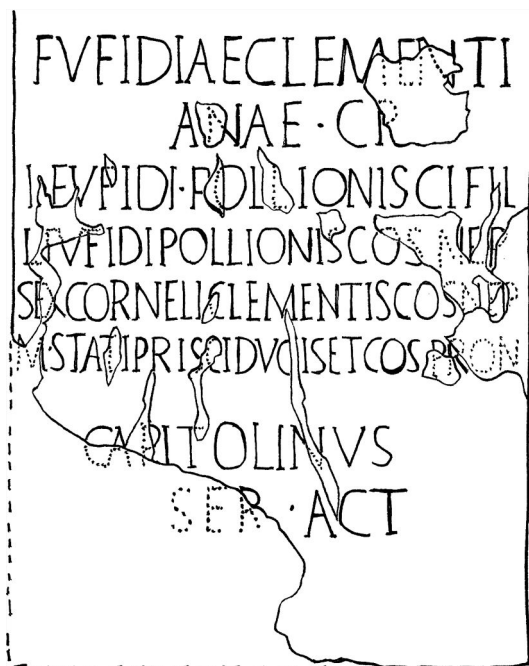 FVFIDIAECLEMENTI
ANAE · CP
L·FVFIDI·POLLIONISCIFIL
L·FVFIDIPOLLIONISCOSNEP
SEXCORNELICLEMENTISCOSNEP
M·STATIPRISCIDVCISETCOSPRON
CAPITOLINVS
SER · ACT